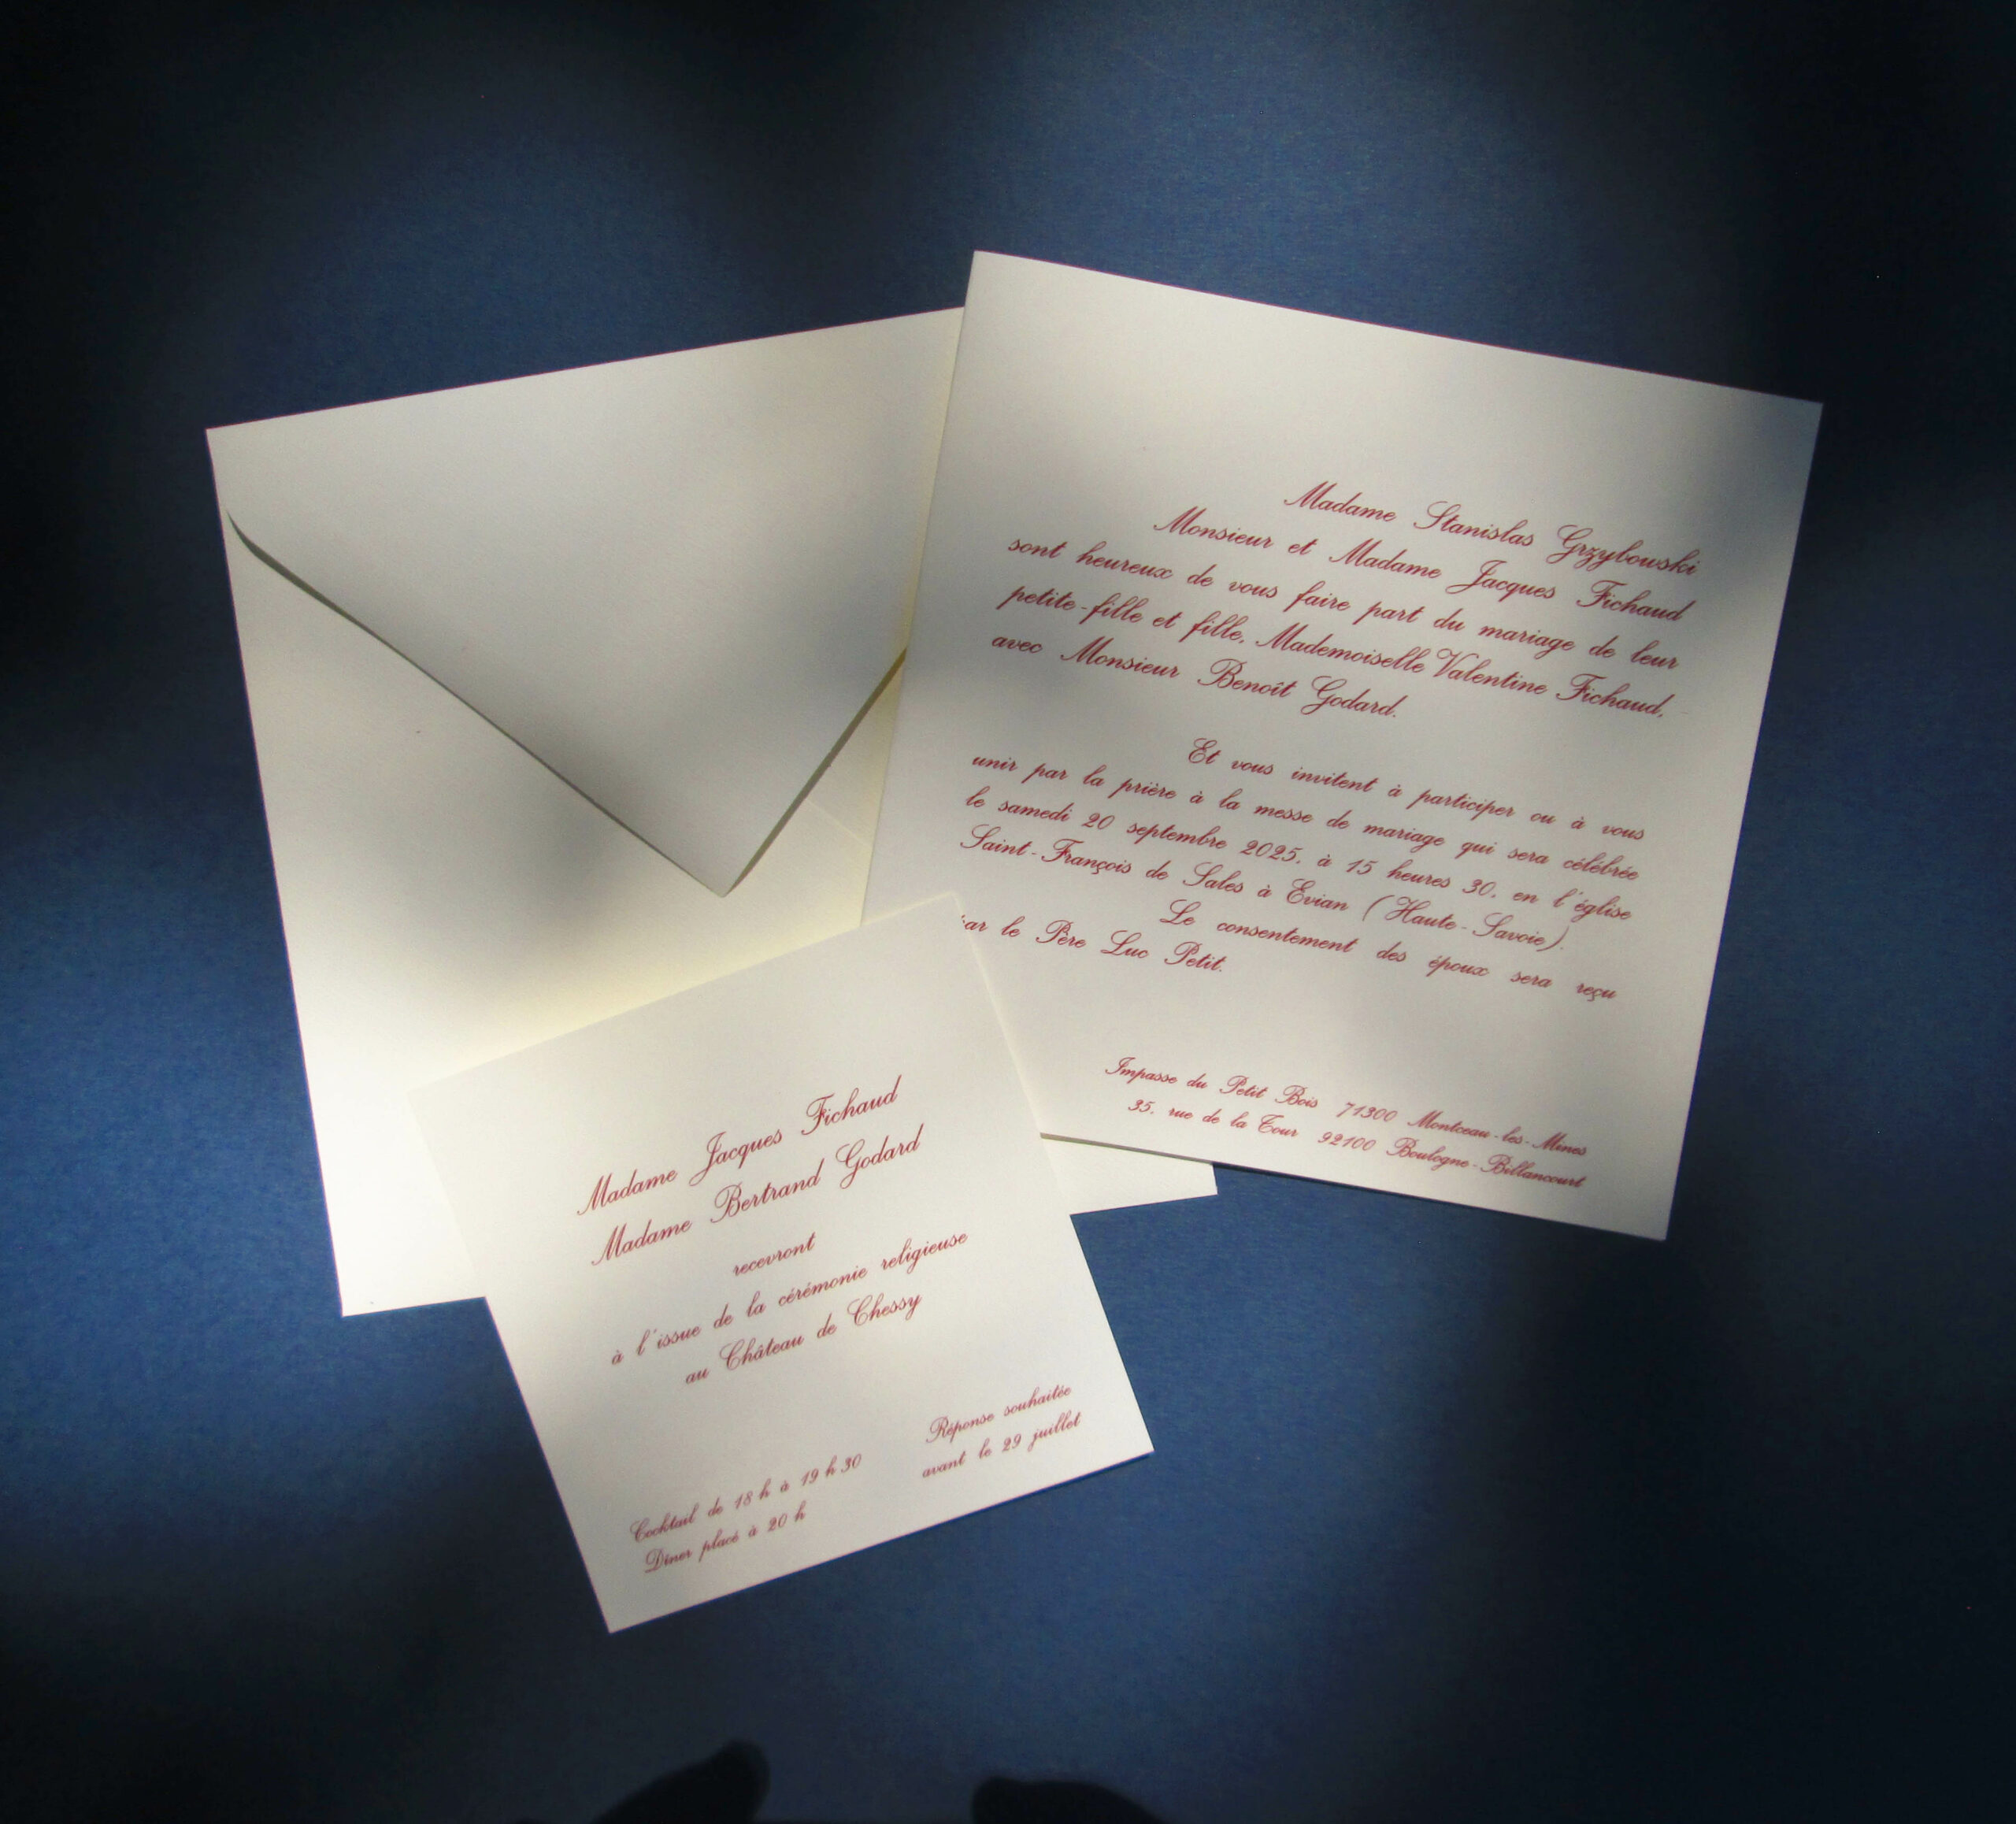 Madame Stanislas Grzybowski
Monsieur et Madame Jacques Fichaud
sont heureux de vous faire part du mariage de leur
petite-fille et fille, Mademoiselle Valentine Fichaud,
avec Monsieur Benoît Godard.
Et vous invitent à participer ou à vous
unir par la prière à la messe de mariage qui sera célébrée
le samedi 20 septembre 2025, à 15 heures 30, en l'église
Saint-François de Sales à Evian (Haute-Savoie).
Le consentement des époux sera reçu
par le Père Luc Petit.
Impasse du Petit Bois 71300 Montceau-les-Mines
35, rue de la Tour 92100 Boulogne-Billancourt
Madame Jacques Fichaud
Madame Bertrand Godard
recevront
à l'issue de la cérémonie religieuse
au Château de Chessy
Réponse souhaitée
avant le 29 juillet
Cocktail de 18 h à 19 h 30
Dîner placé à 20 h